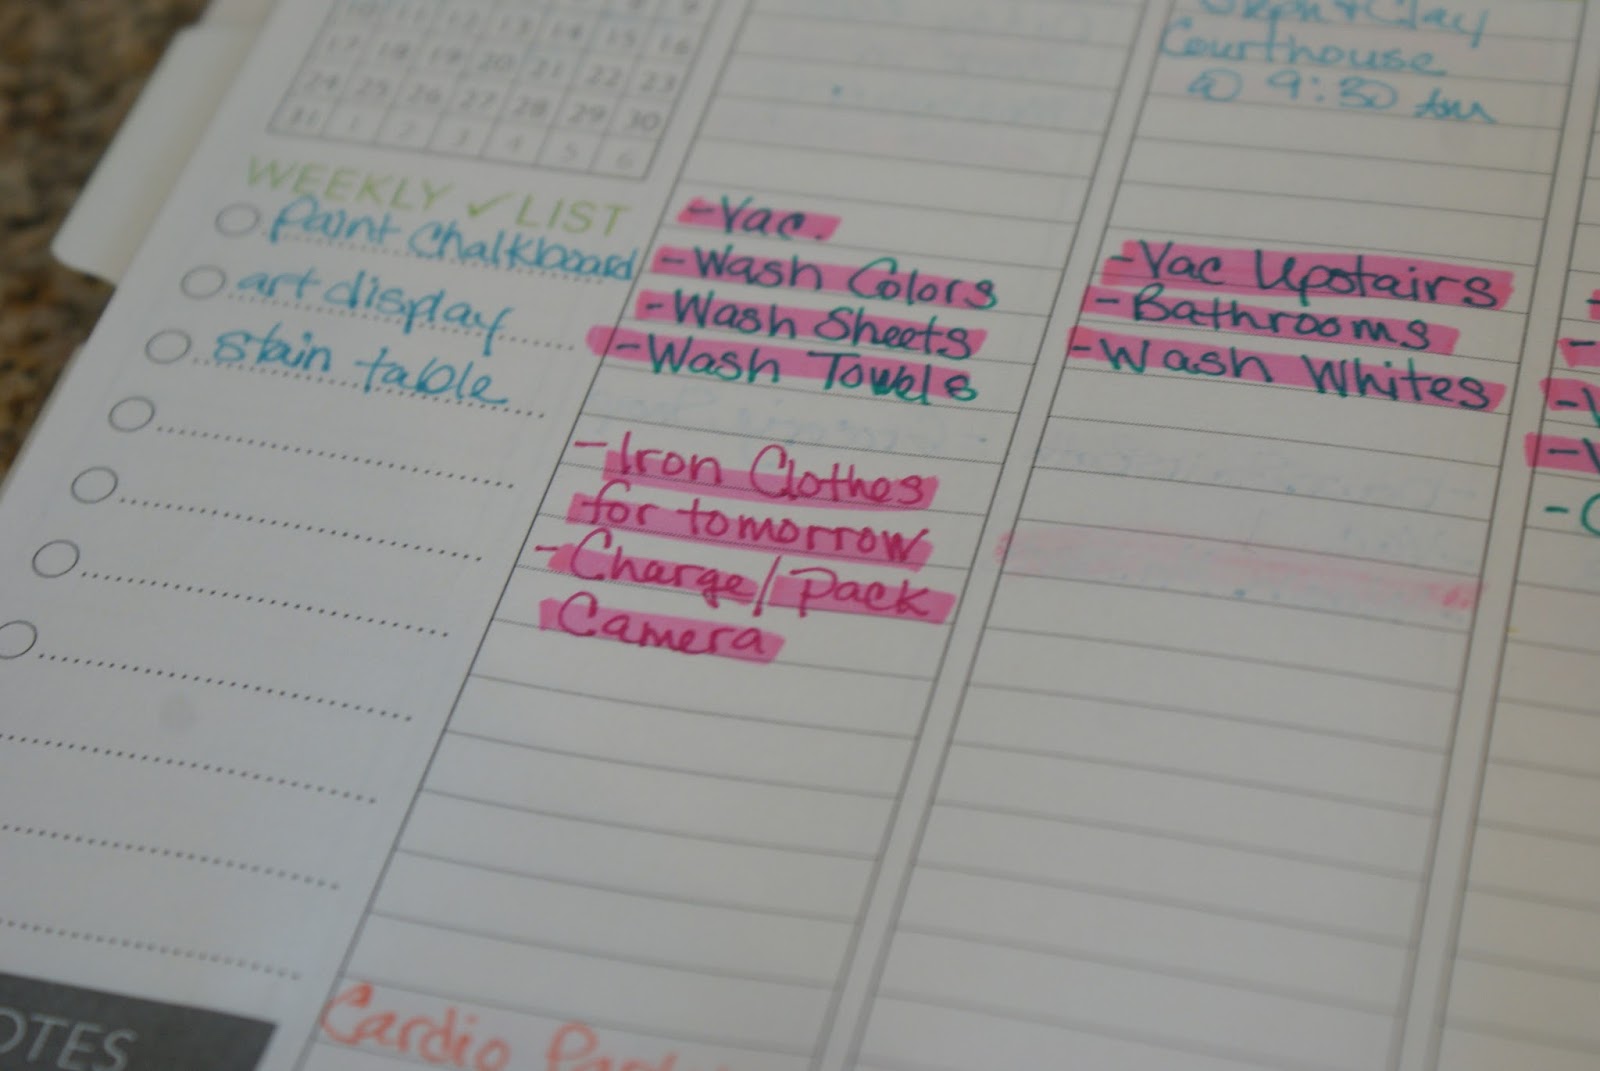 10 11 12 13 14 15 16
17 18 19 20 21 22 23
24 25 26 27 28 29 30
31 1 2 3 4 5 6
WEEKLY ✓ LIST
Paint Chalkboard
art display
stain table
OTES
- Vac.
- Wash Colors
- Wash Sheets
- Wash Towels
- Iron Clothes
for tomorrow
- Charge/Pack
Camera
Cardio
Clay
Courthouse
@ 9:30 am
- Vac Upstairs
- Bathrooms
- Wash Whites